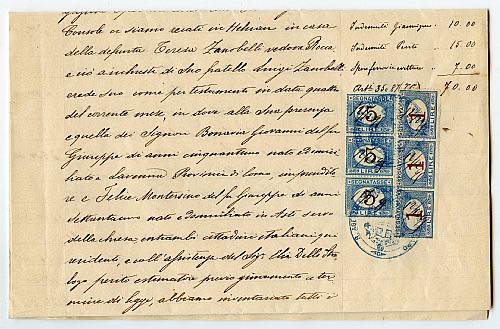 Console ci siamo recati in Helouan in casa
della defunta Teresa Zanobelli vedova Rocca
e ciò a richiesta di Suo fratello Luigi Zanobelli
erede Suo come per testamento in data quattro
del corrente mese, in dove alla Sua presenza
e quella dei Signori Bonavia Giovanni del fu
Giuseppe di anni cinquantuno nato e domici
liato a Provincia di Como, imprendito
re e Felice Montorsino del fu Giuseppe di anni
settantuno nato e domiciliato in Asti servo
della chiesa, entrambi cittadini italiani qui
residenti, e coll'assistenza del Sigr. Elia Dello Stro
logo perito estimatore previo giuramento a ter
mine di legge, abbiamo inventariato tutti i
Indennità 10. 00
Indennità Perito 15. 00
Spese ferrovia e vetture 7. 00
70. 00
SEGNATASSE
5
LIRE
SEGNATASSE
5
LIRE
SEGNATASSE
5
LIRE
1
1
1